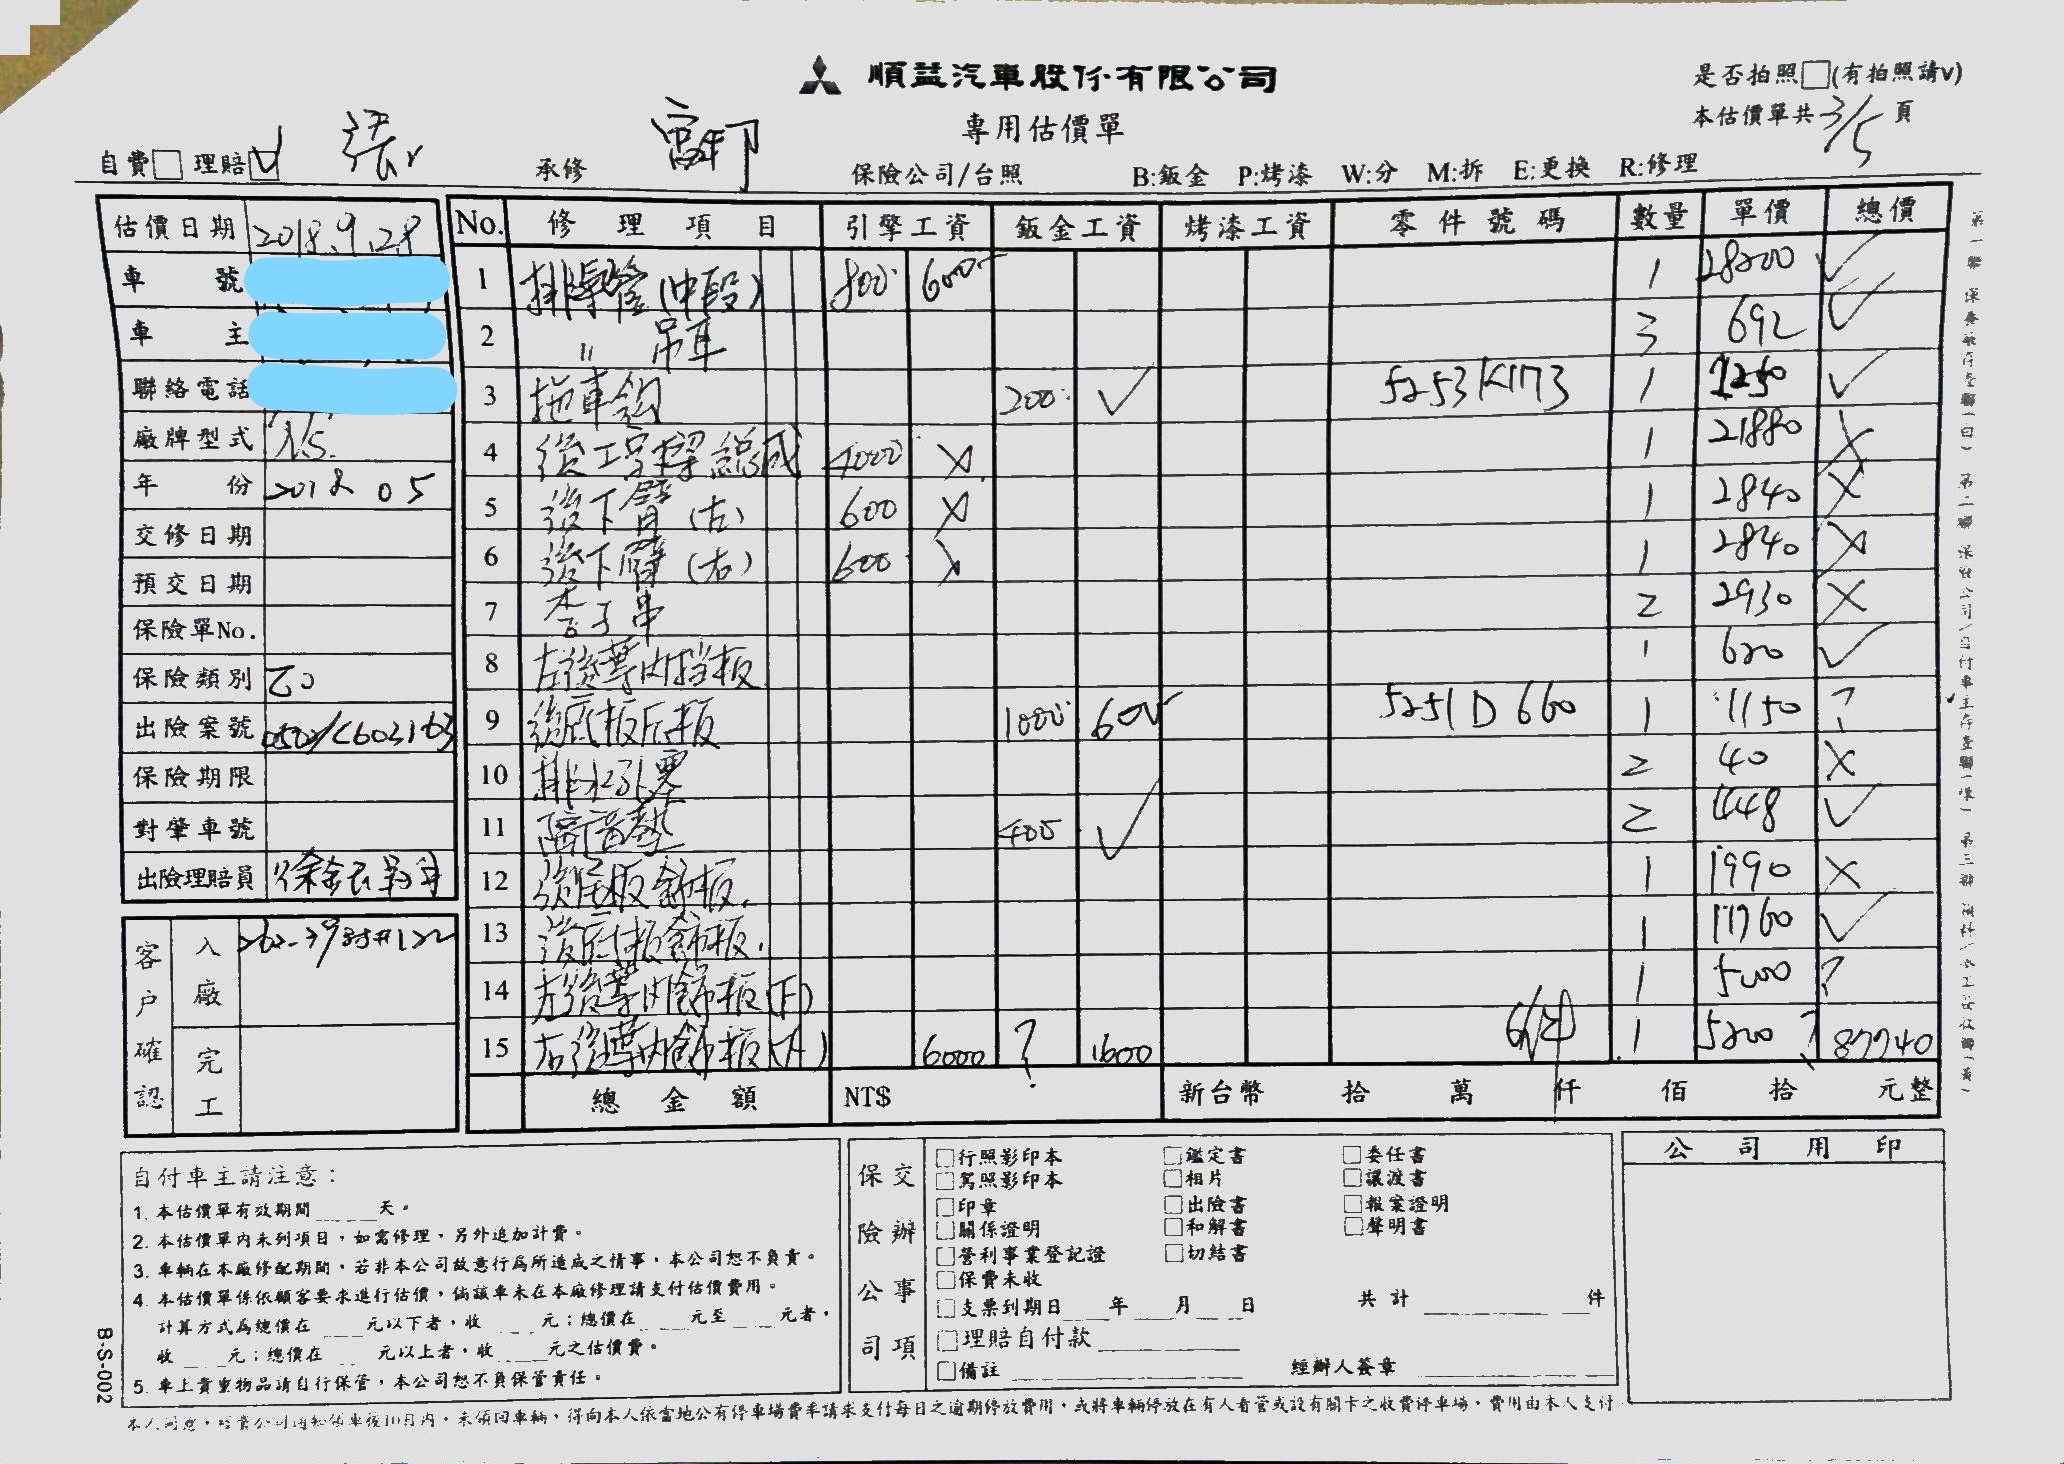 順益汽車股份有限公司
專用估價單
是否拍照□(有拍照請v)
本估價單共3/5頁
自費□ 理賠□ 張 承修 保險公司/台照 B:鈑金 P:烤漆 W:分 M:拆 E:更換 R:修理
估價日期 2018.9.28
車號
車主
聯絡電話
廠牌型式
年份 2018 05
交修日期
預交日期
保險單No.
保險類別 乙
出險案號
保險期限
對肇車號
出險理賠員
客戶確認
入廠
完工
No. 修理項目 引擎工資 鈑金工資 烤漆工資 零件號碼 數量 單價 總價
1 排氣管(中段) 800 600 1 28200 ✓
2 〃 吊耳 3 692 ✓
3 拖車鉤 200 ✓ 5253K173 1 1250 ✓
4 後工字樑總成 4000 X 1 21880 X
5 後下臂(左) 600 X 1 2840 X
6 後下臂(右) 600 X 1 2840 X
7 李子串 2 2930 X
8 左後葉內擋板 1 620 ✓
9 後底板尾板 1000 600 5251D660 1 1150 ?
10 排水孔塞 2 40 X
11 隔音墊 400 ✓ 2 1448 ✓
12 後尾板飾板 1 1990 X
13 後底板飾板 1 11760 ✓
14 左後葉內飾板(下) 1 5200 ?
15 右後葉內飾板(下) 6000 ? 1600 1 5200 ? 87740
總金額 NT$ 新台幣 拾 萬 仟 佰 拾 元整
自付車主請注意：
1. 本估價單有效期間____天。
2. 本估價單內未列項目，如需修理，另外追加計費。
3. 車輛在本廠修配期間，若非本公司故意行為所造成之情事，本公司恕不負責。
4. 本估價單係依顧客要求進行估價，倘該車未在本廠修理請支付估價費用。
計算方式為總價在____元以下者，收____元；總價在____元至____元者，
收____元；總價在____元以上者，收____元之估價費。
5. 車上貴重物品請自行保管，本公司恕不負保管責任。
B-S-002
保險公司 交辦事項
□行照影印本 □鑑定書 □委任書
□駕照影印本 □相片 □讓渡書
□印章 □出險書 □報案證明
□關係證明 □和解書 □聲明書
□營利事業登記證 □切結書
□保費未收
□支票到期日____年____月____日 共計________件
□理賠自付款________
□備註________ 經辦人簽章________
公司用印